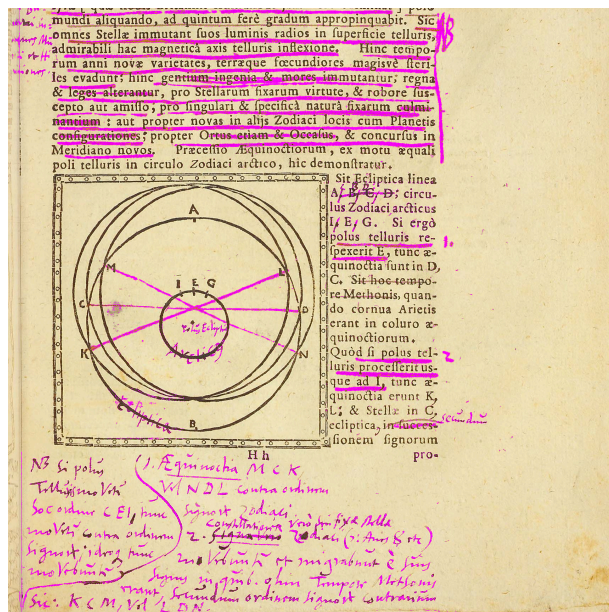 mundi aliquando, ad quintum ferè gradum appropinquabit. Sic
omnes Stellæ immutant suos luminis radios in superficie telluris,
admirabili hac magneticâ axis telluris inflexione. Hinc tempo-
rum anni novæ varietates, terræque fœcundiores magisve steri-
les evadunt; hinc gentium ingenia & mores immutantur; regna
& leges alterantur, pro Stellarum fixarum virtute, & robore sus-
cepto aut amisso, pro singulari & specificâ naturâ fixarum culmi-
nantium: aut propter novas in alijs Zodiaci locis cum Planetis
configurationes; propter Ortus etiam & Occasus, & concursus in
Meridiano novos. Præcessio Æquinoctiorum, ex motu æquali
poli telluris in circulo Zodiaci arctico, hic demonstratur.
NB
Sit Ecliptica linea
A, B, C, D; circu
lus Zodiaci arcticus
I, E, G. Si ergò
polus telluris re-
spexerit E, tunc æ-
quinoctia sunt in D,
C. Sit hoc tempo-
re Methonis, quan-
do cornua Arietis
erant in coluro æ-
quinoctiorum.
Quòd si polus tel-
luris processerit us-
que ad I, tunc æ-
quinoctia erunt K,
L; & Stellæ in C,
ecliptica, in succes-
sionem signorum
1.
2
secundum
A
M L
I E G
C D
K N
Ecliptica
B
H h
pro-
NB Si polus
Telluris moveti
hoc ordine G E I, tunc
moveti contra ordinem
Signor
movebunt
Sic: K C M, vel L D N.
1. Æquinoctia M C K
Vel N D L contra ordinem
Signor Zodiaci
2. Zodiaci
movebunt et migrabunt è suis
Signis Tempore Methonis
erant, Secundum ordinem signor